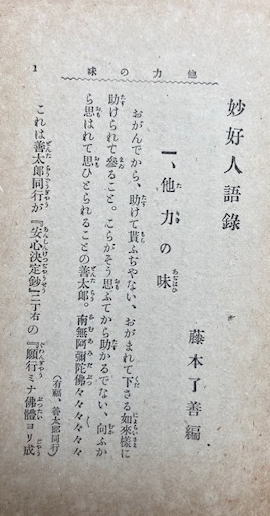 妙好人語錄
藤木了善編
一、他力の味
おがんでから、助けて貰ふぢやない、おがまれて下さる如來樣に
助けられて參ること。こらがそう思ふてから助かるでない、向ふか
ら思はれて思ひとられることの善太郎。南無阿彌陀佛々々々々々々
(有福、善太郎同行)
これは善太郎同行が『安心決定鈔』三丁右の『願行ミナ佛體ヨリ成
他力の味
1